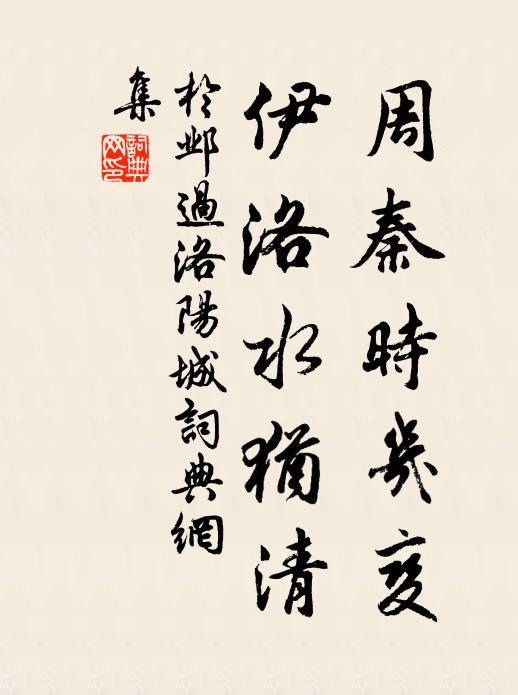 周秦時幾变
伊洛水猶清
於鄴過洛陽城詞典網
集
詞典
网印